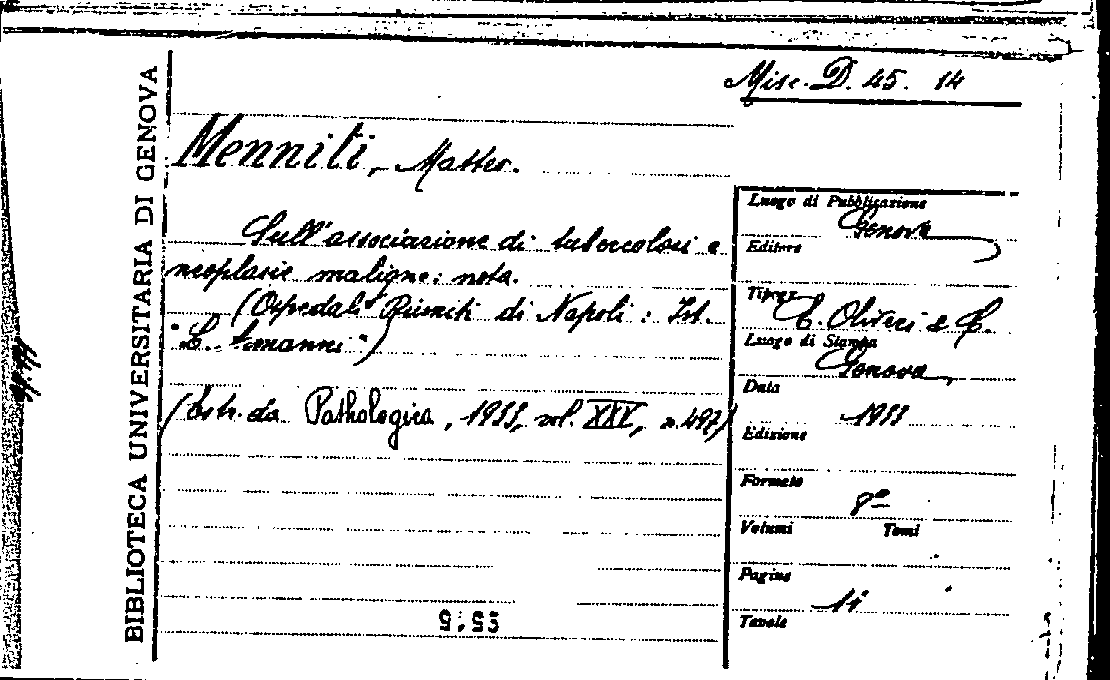 BIBLIOTECA UNIVERSITARIA DI GENOVA
Misc. D. 45. 14
Menniti, Matteo.
Sull'associazione di tubercolosi e
neoplasie maligne: nota.
(Ospedali Riuniti di Napoli: Ist.
Luogo di Pubblicazione
Genova
Editore
Tipogr.
C. Oliveri & C.
Luogo di Stampa
Genova
Data
1933
Edizione
Formato
8º
Volumi Tomi
Pagine
Tavole
(Estr. da Pathologica, 1933, vol. XXV, n. 497)